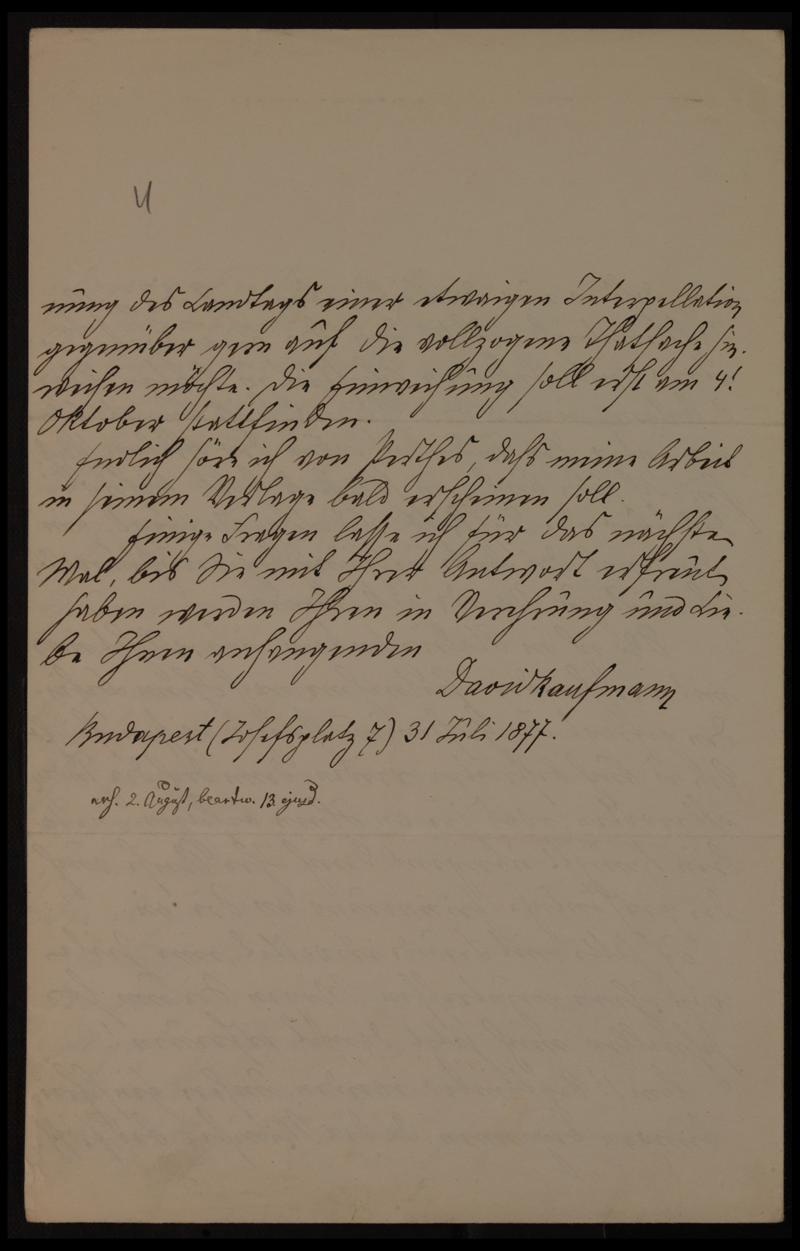 4
nung des Landtags einer etwaigen Interpellation
gegenüber gern auf die vollzogene Thatsache hin-
weisen möchte. Die Einweihung soll erst am 4!
Oktober stattfinden.
Endlich höre ich von Perthes, dass meine Arbeit
in seinem Verlage bald erscheinen soll.
Einige Fragen lasse ich für das nächste
Mal, bis Sie mit Ihrer Antwort erfreut
haben werden Ihren in Verehrung und Lie-
be Ihnen anhangenden
David Kaufmann
Budapest (Josefsplatz 7) 31 Juli 1877.
erh. 2. August, beantw. 13 ejusd.